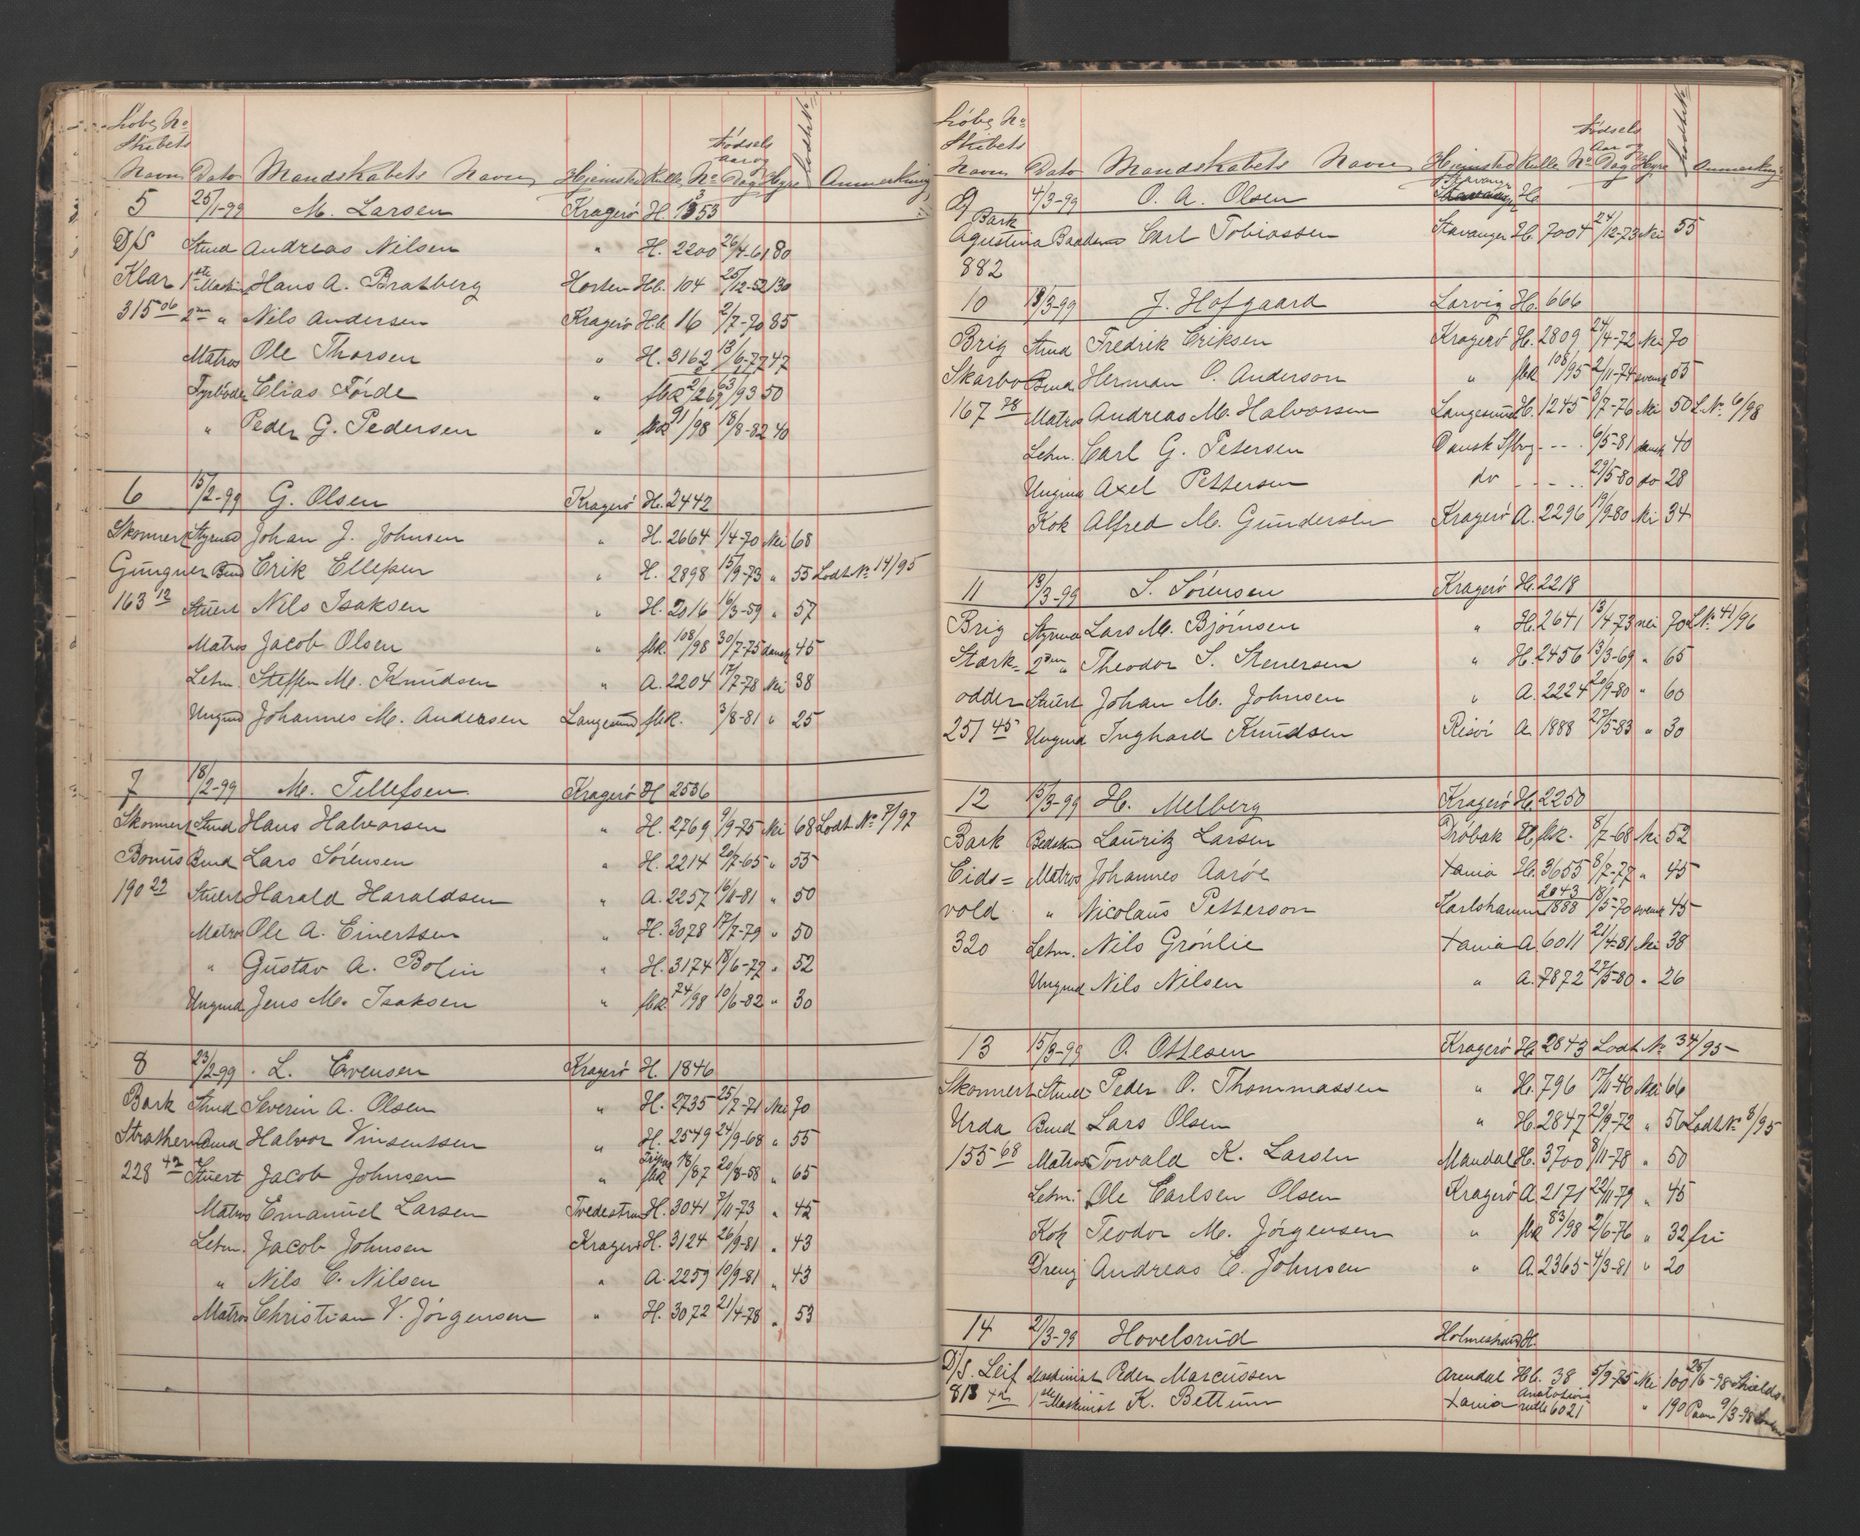 Löbe No
Skibets
Navn Dato Mandskabets Navn Hjemsted Rulle No Fødsels aar og Dag Hyre Lodtsk. Anmerkning
5 25/1-99 M. Larsen Kragerø H. 1353
D/S Stmd Andreas Nilsen " H. 2200 26/4-61 80
Klar 1ste Maskin Hans A. Bratberg Horten Hb. 104 25/12-52 130
315 06 2den " Nils Andersen Kragerø H.b. 16 2/7-70 85
Matros Ole Thorsen " H. 3162 13/6-77 47
Fyrbøder Elias Førde " fbk 63/93 50
" Peder G. Pedersen " fbk 91/98 18/8-82 40
6 15/2-99 G. Olsen Kragerø H. 2442
Skonnert Styrmd Johan J. Johnsen " H. 2664 1/4-70 Nei 68
Gungner Bmd Erik Ellefsen " H. 2898 15/9-73 " 55 Lodt No 14/95
163 12 Stuert Nils Isaksen " H. 2016 16/3-59 " 57
Matros Jacob Olsen " fbk. 108/98 30/7-75 dansk 45
Letm. Steffen M. Knudsen " A. 2204 17/7-78 Nei 38
Ungmd Johannes M. Andersen Langesund fbk. 3/8-81 " 25
7 18/2-99 M. Tellefsen Kragerø H 2536
Skonnert Stmd Hans Halvorsen " H. 2769 9/9-75 Nei 68 Lodt No 7/97
Bonus Bmd Lars Sørensen " H. 2214 20/7-65 " 55
190 22 Stuert Harald Haraldsen " A. 2257 16/11-81 " 50
Matros Ole A. Eivertsen " H. 3078 17/7-79 " 50
" Gustav A. Bolin " H. 3174 18/6-77 " 52
Ungmd Jens M. Isaksen " fbk. 74/98 10/6-82 " 30
8 23/2-99 L. Evensen Kragerø H. 1846
Bark Stmd Severin A. Olsen " H. 2735 25/7-71 Nei 70
Strathern Bmd Halvor Vinsentsen " H. 2549 24/9-68 " 55
228 42 Stuert Jacob Johnsen " fbk 18/87 20/8-58 " 65
Matros Emanuel Larsen Tvedestrand H. 3041 7/11-73 " 45
Letm. Jacob Johnsen Kragerø H. 3124 26/9-81 " 43
" Nils C. Nilsen " A. 2259 10/9-81 " 43
Matros Christian V. Jørgensen " H. 3072 21/4-78 " 53
Löbe No
Skibets
Navn Dato Mandskabets Navn Hjemsted Rulle No Fødsels Aar og Dag Hyre Lodtsk. Anmerkning
9 4/3-99 O. A. Olsen Stavanger H.
Bark
Agustina Baadsmd Carl Tobiassen Stavanger H. 7004 24/12-73 Nei 55
882
10 13/3-99 J. Hofgaard Larvig H. 666
Brig Stmd Fredrik Eriksen Kragerø H. 2809 24/4-72 Nei 70
Skarbo Bmd Herman O. Anderson " fbk 108/95 2/11-74 svensk 55
167 78 Matros Andreas M. Halvorsen Langesund H. 1245 9/7-76 Nei 50 L. No. 6/98
Letm. Carl G. Petersen Dansk Sfbog - - - 6/5-81 dansk 40
Ungmd Axel Pettersen do - - - 29/5-80 do 28
Kok Alfred M. Gundersen Kragerø A. 2296 19/9-80 Nei 34
11 13/3-99 S. Sørensen Kragerø H. 2218
Brig Styrmd Lars M. Bjørnsen " H. 2641 13/4-73 nei 70 L No. 41/96
Stærk= 2den " Theodor S. Stenersen " H. 2456 13/3-69 " 65
odder Stuert Johan M. Johnsen " A. 2224 20/9-80 " 60
251 45 Ungmd Inghard Knudsen Risör A. 1888 27/5-83 " 30
12 15/3-99 H. Melberg Kragerø H. 2250
Bark Bedstmd Lauritz Larsen Drøbak H. fbk. 8/7-68 Nei 52
Eids= Matros Johannes Aarøe Xania H. 3655 8/7-77 " 45
vold " Nicolaus Petterson Karlshamn 2043/1888 18/5-70 svensk 45
320 Letm. Nils Grønlie Xania A. 6011 21/4-81 Nei 38
Ungmd Nils Nilsen " A. 7872 27/5-80 " 26
13 15/3-99 O. Ottesen Kragerø H. 2843 Lodt No 34/95
Skonnert Stmd Peder O. Thommassen " H. 796 17/11-46 Nei 66
Urda Bmd Lars Olsen " H. 2847 29/9-72 " 56 Lodt No 8/95
155 68 Matros Torvald K. Larsen Mandal H. 3700 8/11-78 " 50
Letm. Ole Carlsen Olsen Kragerø A. 2171 22/11-79 " 45
Kok Teodor M. Jørgensen " fbk 83/98 2/6-76 " 32 fri
Dreng Andreas C. Johnsen " A. 2365 4/3-81 " 20
14 21/3-99 Hovelsrud Holmestrand H.
D/S. Leif Maskinist Peder Marcussen Arendal Hb. 38 5/9-75 Nei 100 25/6-98 Shields
813 42 1ste Maskinist K. Bettum Xania rulle 6021 " 190 9/3-98